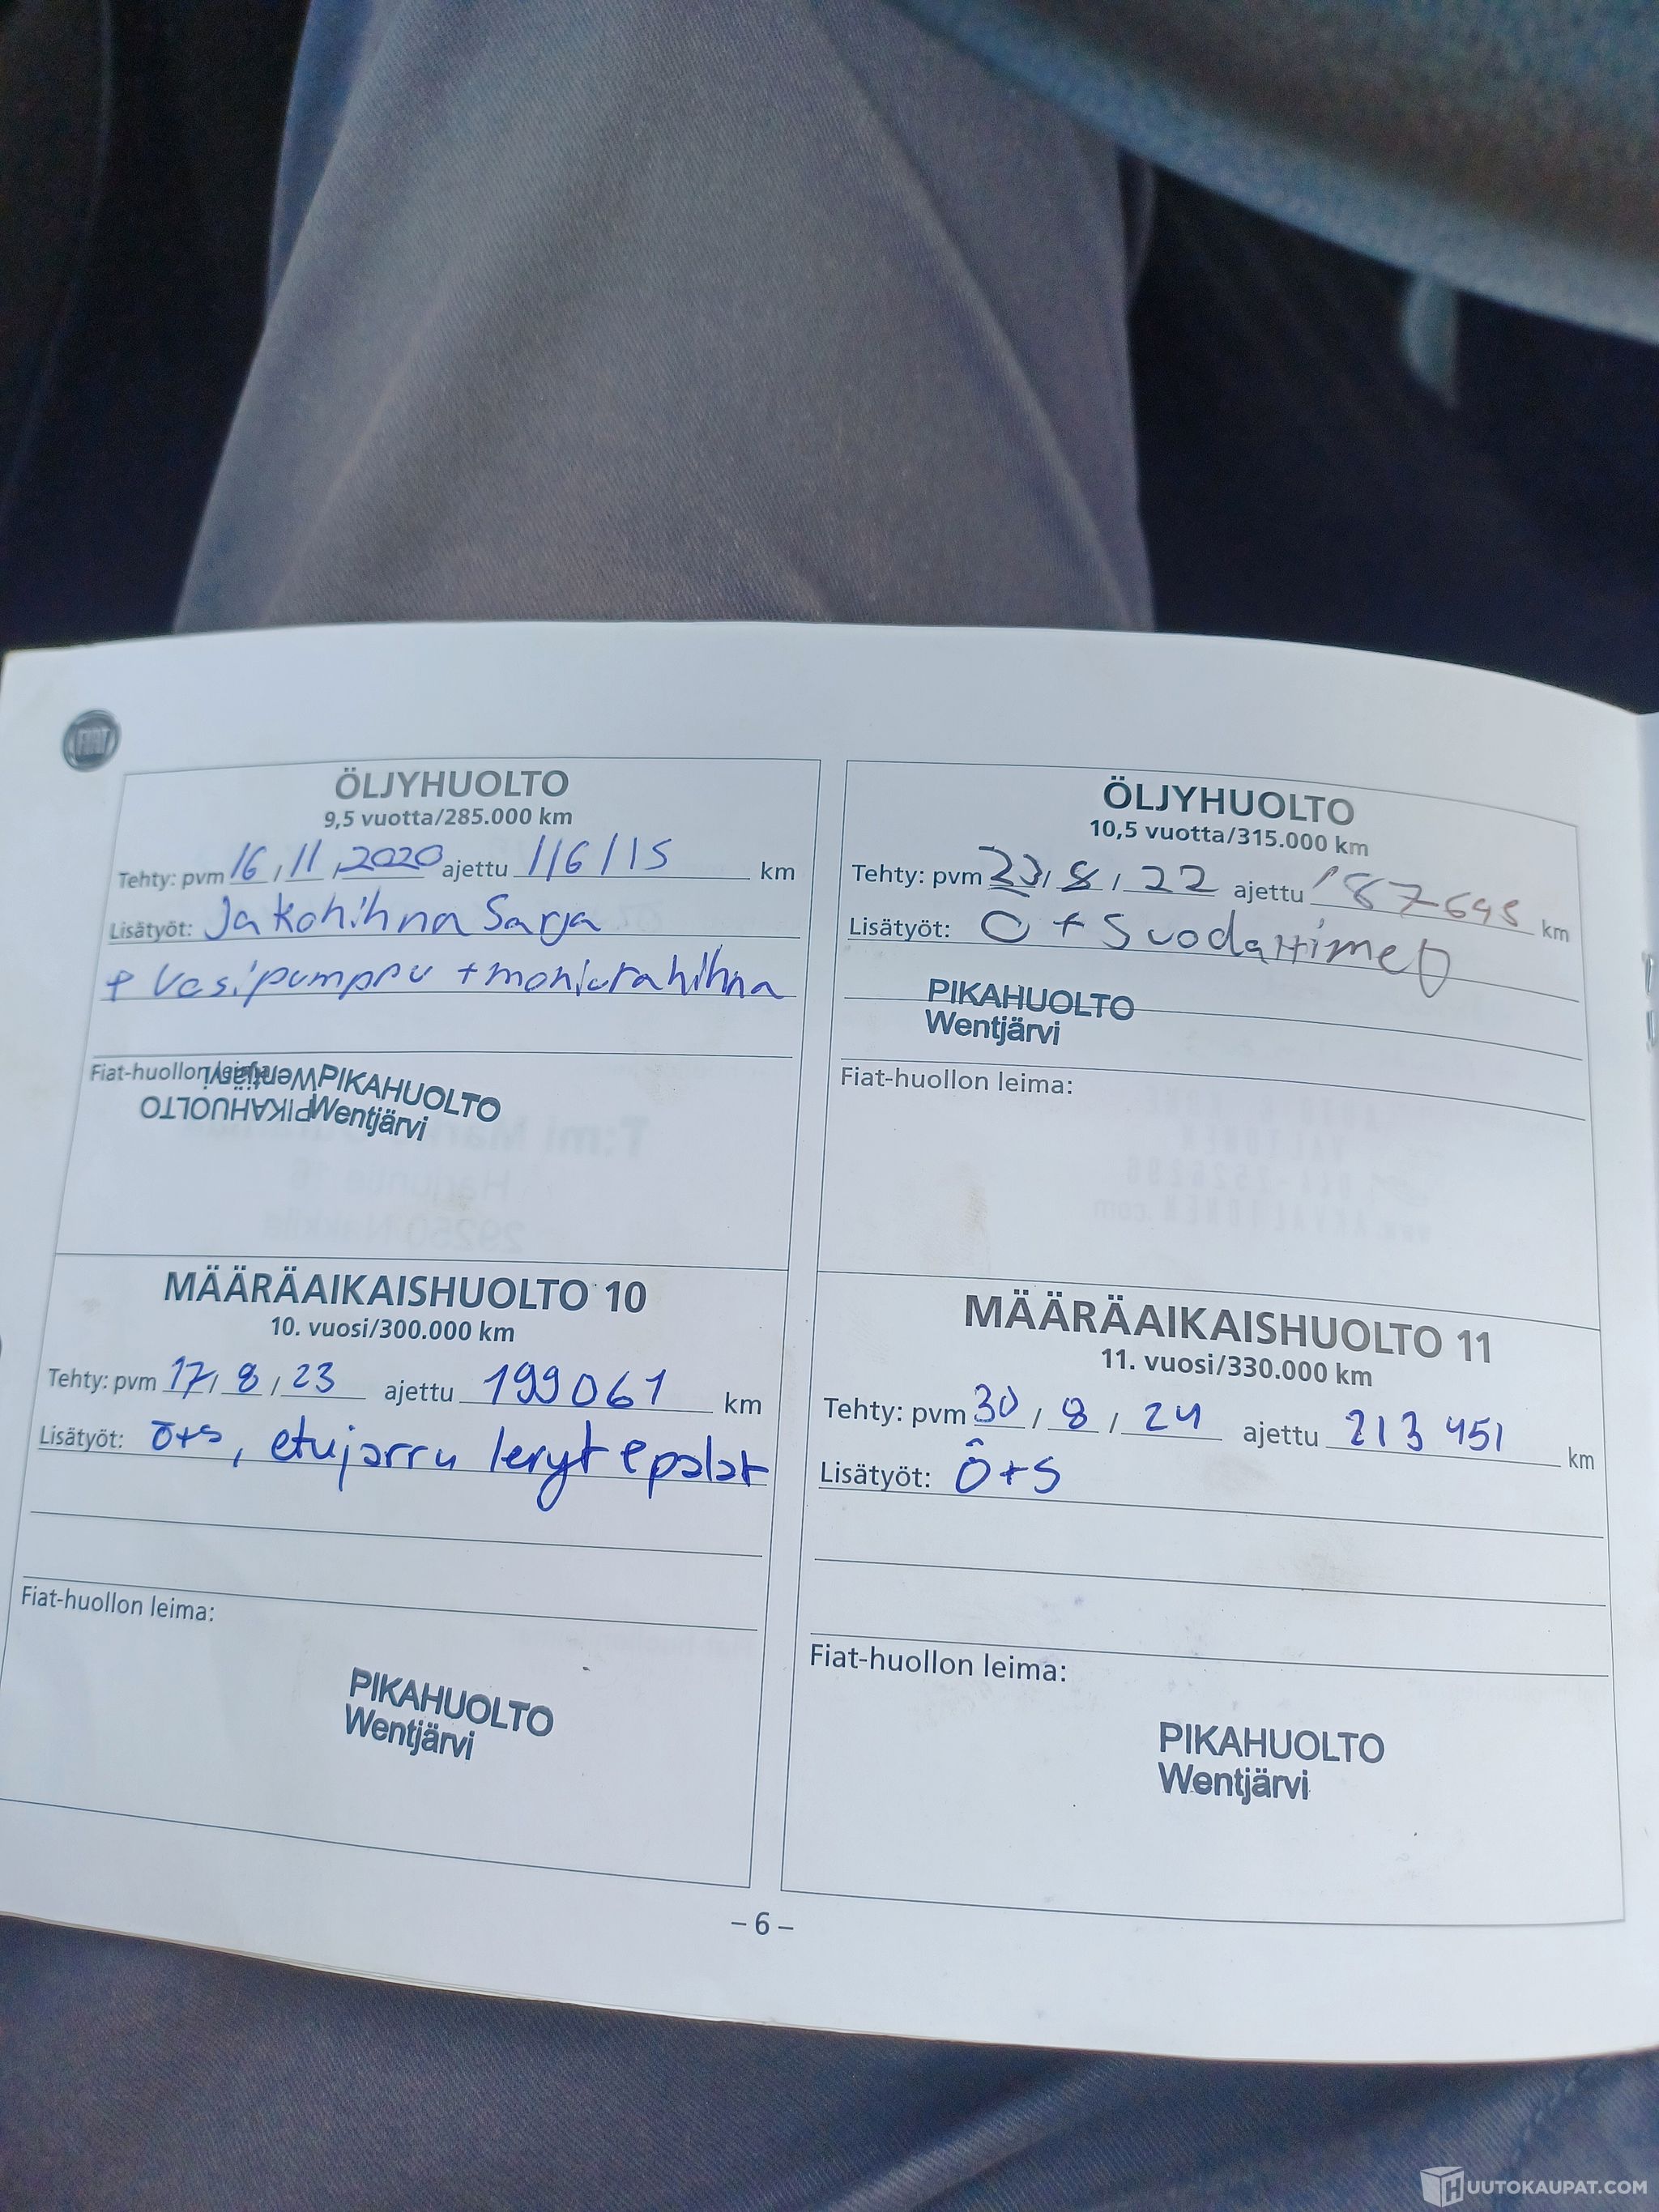 FIAT
ÖLJYHUOLTO
9,5 vuotta/285.000 km
Tehty: pvm 16 / 11 / 2020 ajettu 116115 km
Lisätyöt: Jakohihna Sarja
+ Vesipumppu + moniurahihna
Fiat-huollon leima:
PIKAHUOLTO
Wentjärvi
PIKAHUOLTO
Wentjärvi
MÄÄRÄAIKAISHUOLTO 10
10. vuosi/300.000 km
Tehty: pvm 17 / 8 / 23 ajettu 199061 km
Lisätyöt: Ö+S, etujarru levyt + palat
Fiat-huollon leima:
PIKAHUOLTO
Wentjärvi
ÖLJYHUOLTO
10,5 vuotta/315.000 km
Tehty: pvm 23 / 8 / 22 ajettu km
Lisätyöt: O + Suodattimet
PIKAHUOLTO
Wentjärvi
Fiat-huollon leima:
MÄÄRÄAIKAISHUOLTO 11
11. vuosi/330.000 km
Tehty: pvm 30 / 8 / 24 ajettu 213 451 km
Lisätyöt: Ö+S
Fiat-huollon leima:
PIKAHUOLTO
Wentjärvi
– 6 –
HUUTOKAUPAT.COM